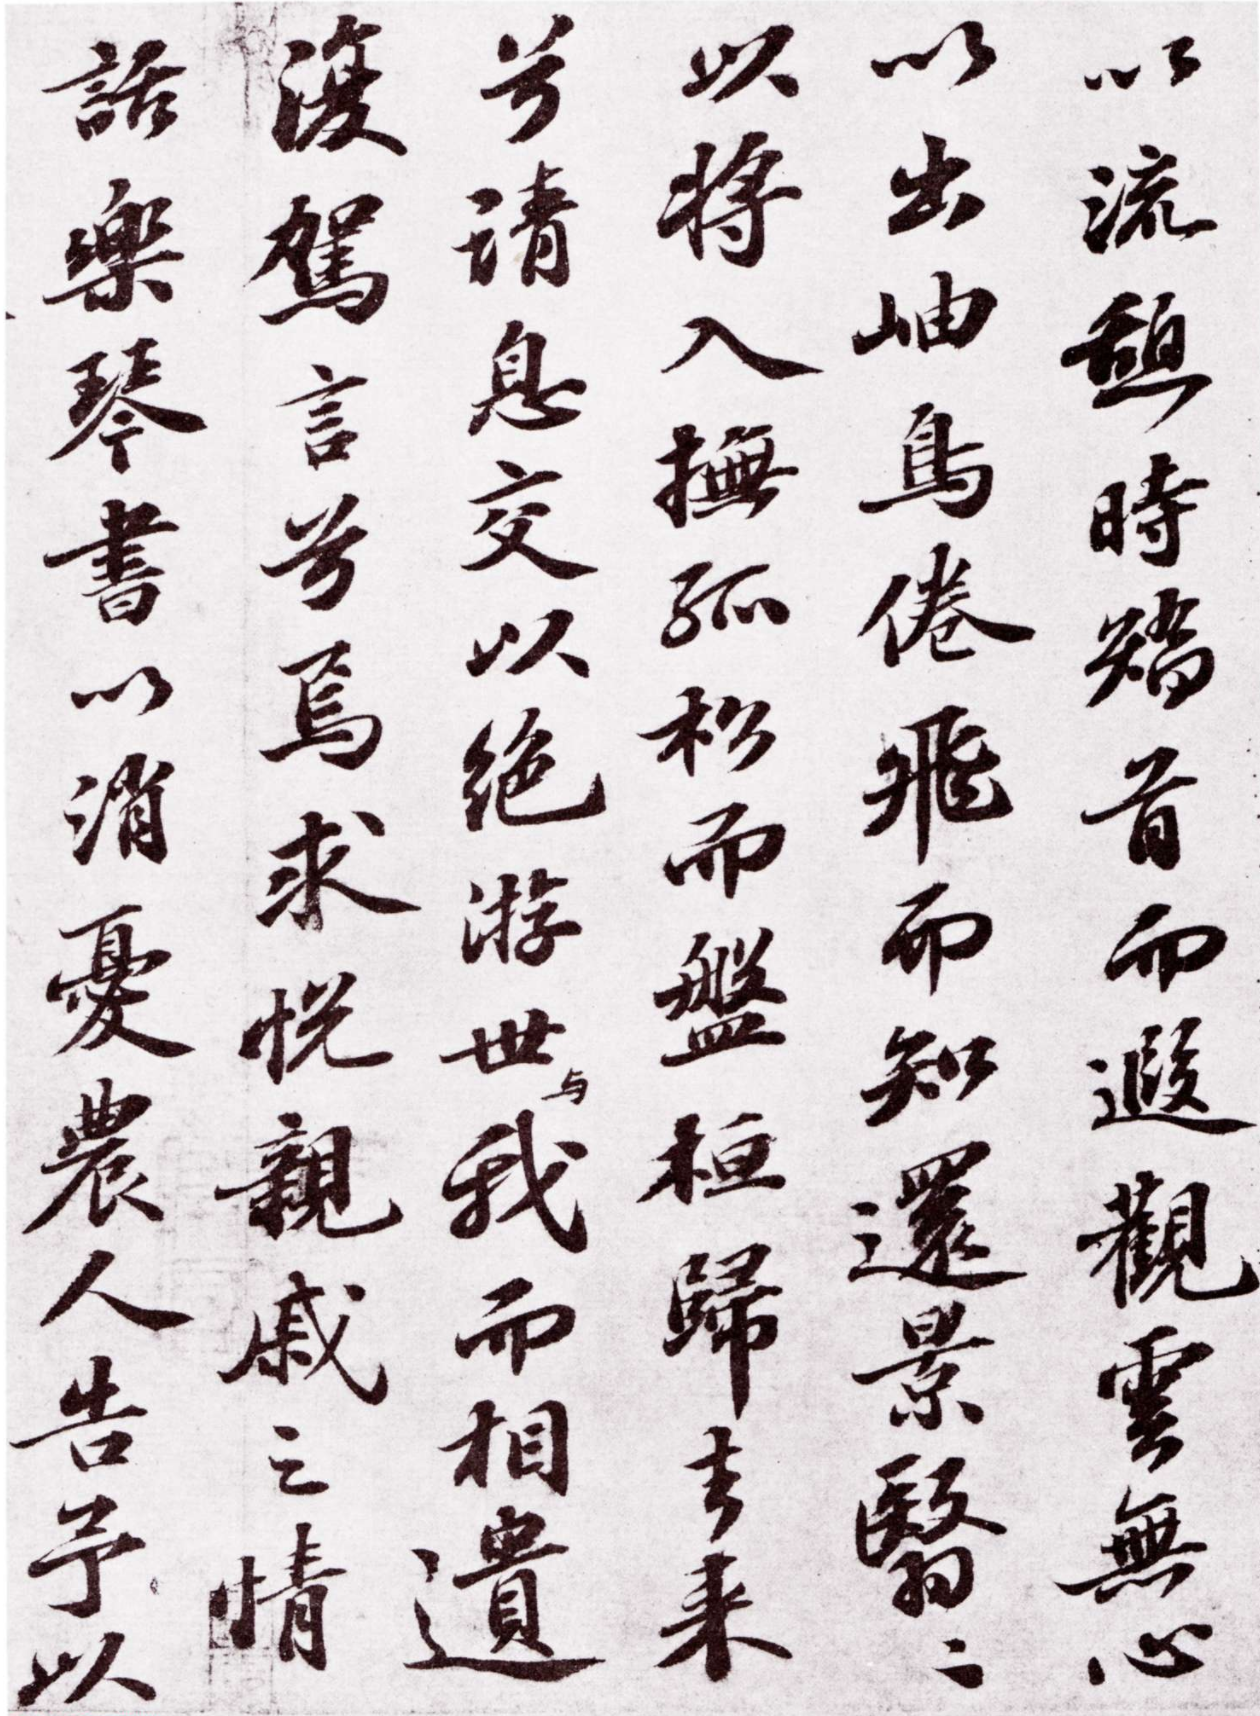 以流憩時矯首而遐觀雲無心
以出岫鳥倦飛而知還景翳〻
以将入撫孤松而盤桓歸去来
兮請息交以絶游世与我而相遺
復駕言兮焉求悅親戚之情
話樂琴書以消憂農人告予以